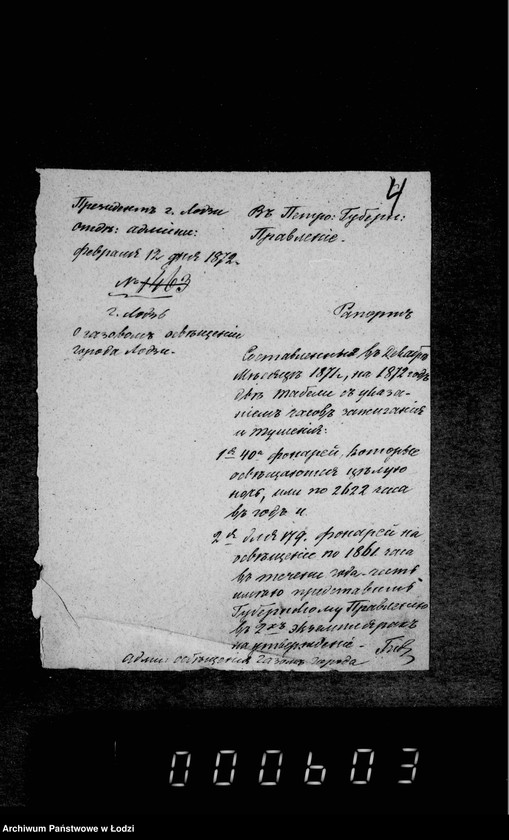 4
Президентъ г. Лодзи
отдѣ: админи:
февраля 12 дня 1872.
№ 1403
г. Лодзь
О газовомъ освѣщеніи
города Лодзи.
Въ Петро: Губерн:
Правленіе.
Рапортъ
Составленныя въ Декабрѣ
Мѣсяцѣ 1871 г., на 1872 годъ
двѣ табели съ указа-
ніемъ часовъ зажиганія
и тушенія:
1я 40а фонарей, которые
освѣщаются цѣлую
ночь, или по 2622 часа
въ годъ и
2я для 179. фонарей на
освѣщеніе по 1861 часа
въ теченіе года честь
имѣю представить
Губернскому Правленію
въ 2хъ экземплярахъ
на утвержденіе.
освѣщенія газомъ города
000603
Archiwum Państwowe w Łodzi